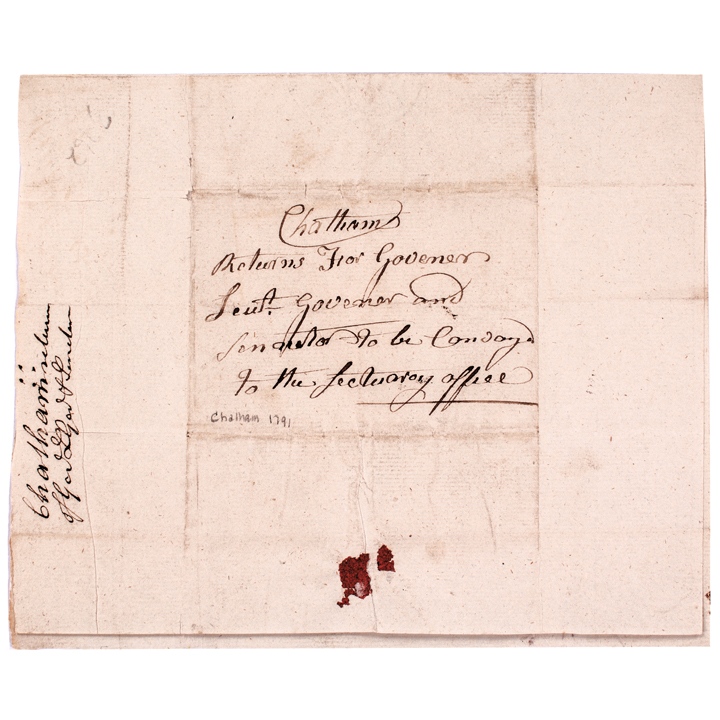 Chatham
Returns For Govener
Leut. Govener and
Senator to be Convayd
to the Sectuarey office
Chatham 1791
Chatham return
of Gov L Gov & Senator